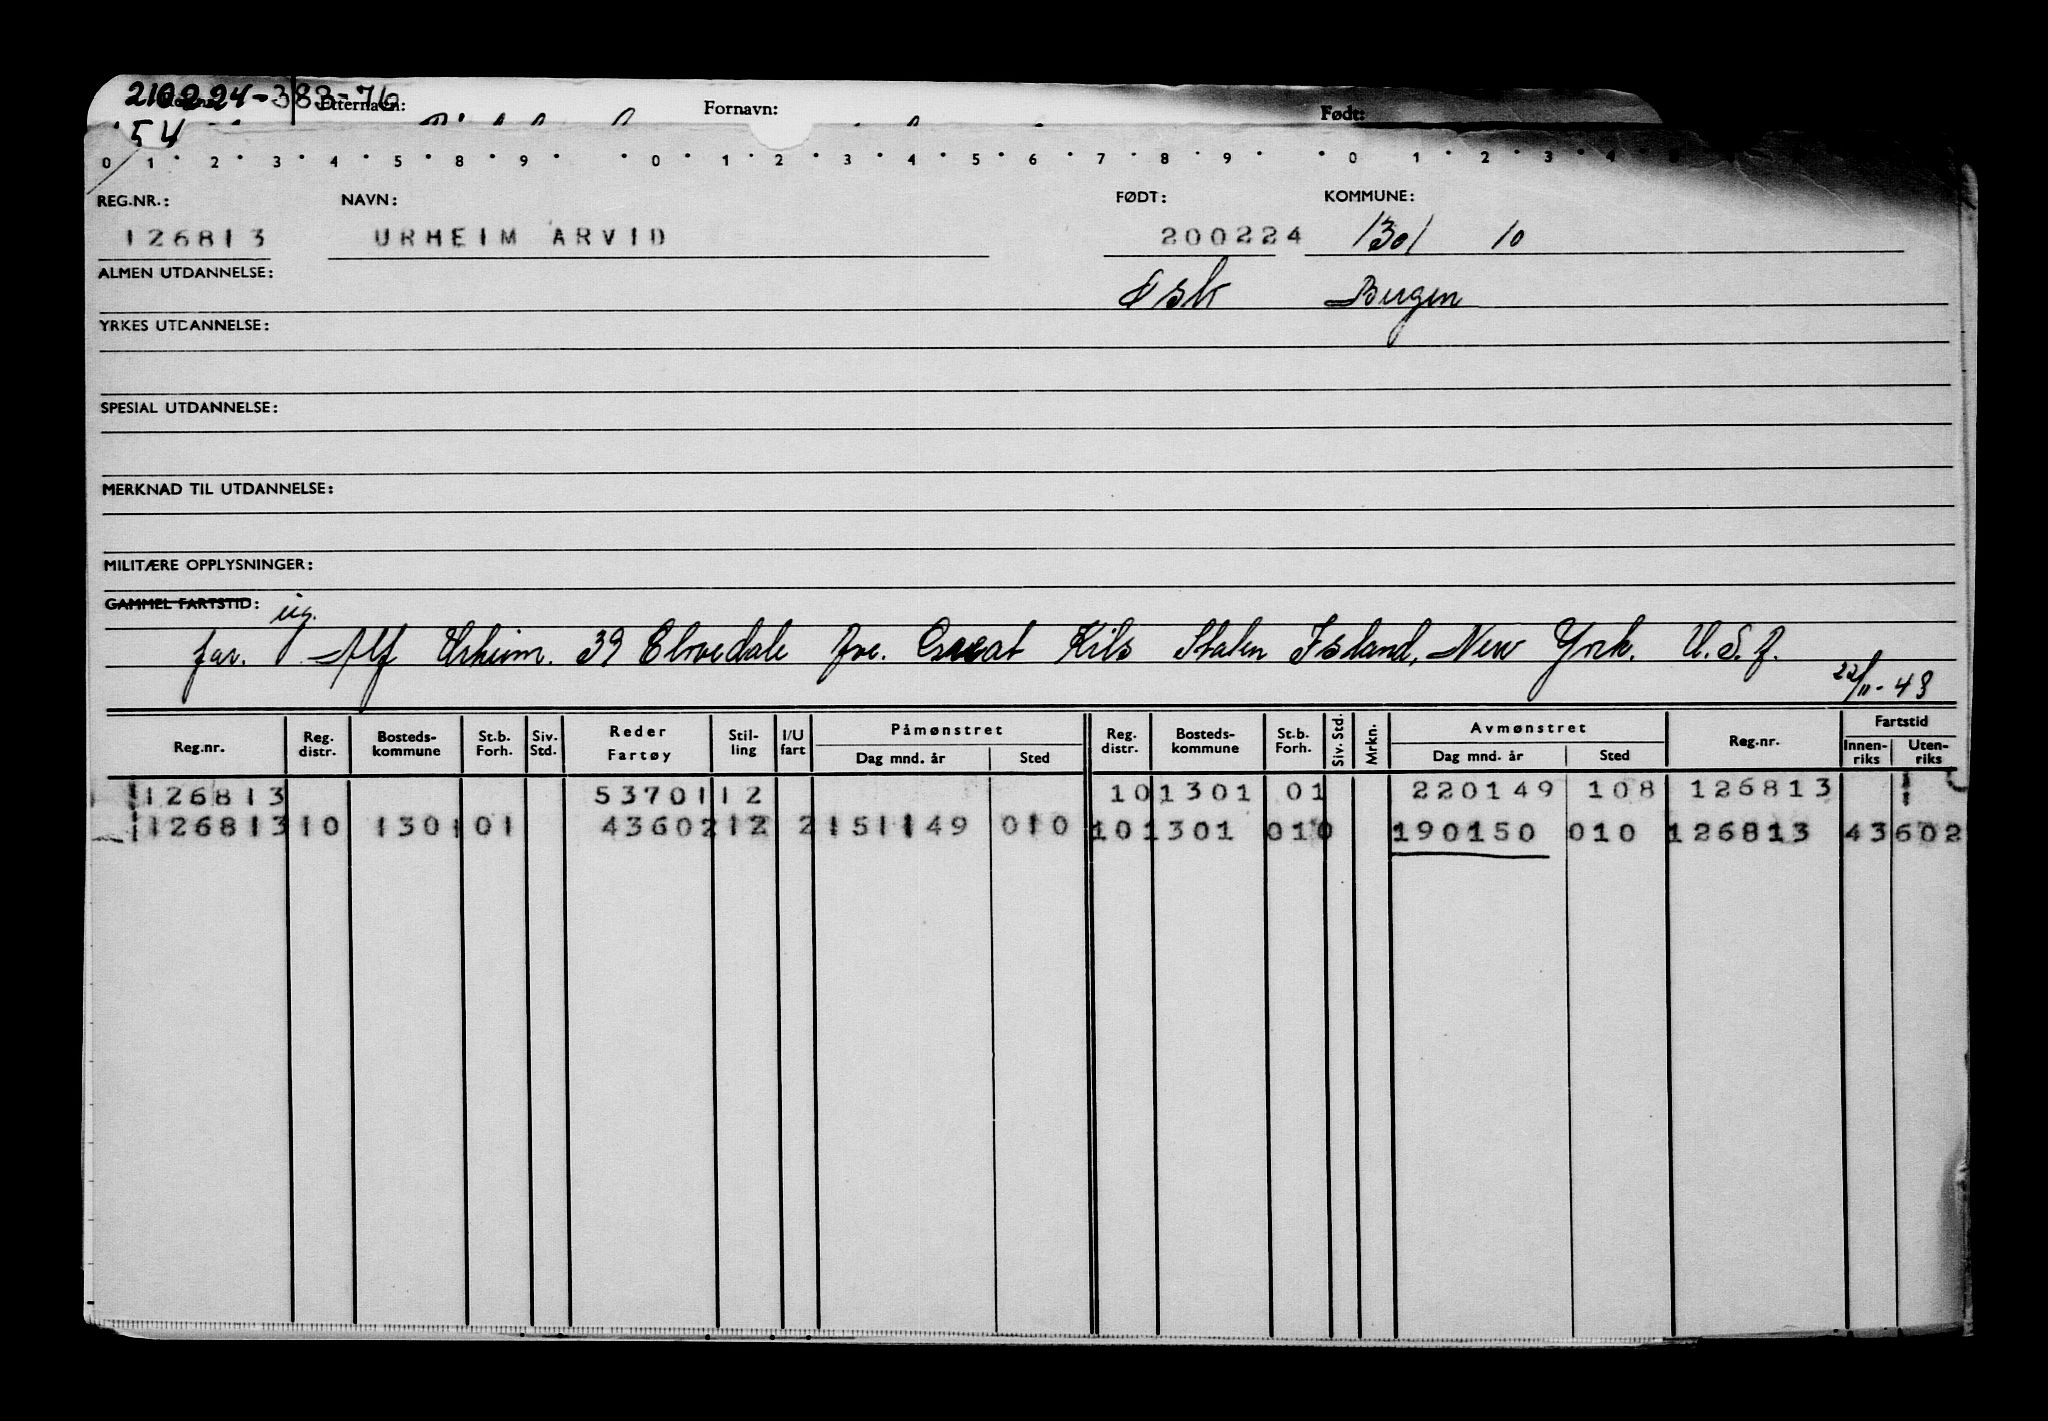 210224-383-76 Etternavn: Fornavn: Født:
54
0 1 2 3 4 5 8 9 0 1 2 3 4 5 6 7 8 9 0 1 2 3 4
REG.NR.: NAVN: FØDT: KOMMUNE:
126813 URHEIM ARVID 200224 1301 10
ALMEN UTDANNELSE: Bergen
YRKES UTDANNELSE:
SPESIAL UTDANNELSE:
MERKNAD TIL UTDANNELSE:
MILITÆRE OPPLYSNINGER:
GAMMEL FARTSTID: ug.
far. Alf Urheim. 39 Elvedale Ave. Great Kils Staten Island, New York. U.S.A.
22/11-43
Reg.nr. Reg. distr. Bosteds-kommune St.b. Forh. Siv. Std. Reder Fartøy Stil-ling I/U fart Påmønstret Dag mnd. år Sted Reg. distr. Bosteds-kommune St.b. Forh. Siv. Std. Mrkn. Avmønstret Dag mnd. år Sted Reg.nr. Fartstid Innen-riks Uten-riks
126813 53701 12 10 1301 01 220149 108 126813
126813 10 1301 01 43602 12 2 151149 010 10 1301 010 190150 010 126813 43602